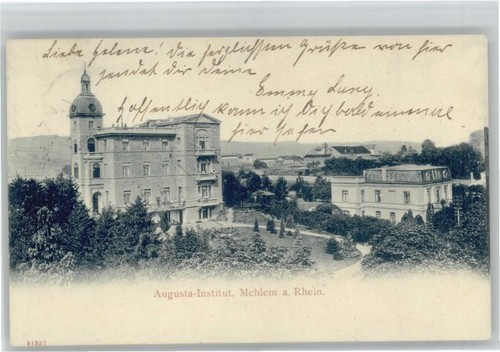 Liebe Helene! Die herzlichsten Grüße von hier
sendet dir deine
Emmy Lang.
hoffentlich kann ich Dich bald einmal
hier sehen
Augusta-Institut, Mehlem a. Rhein.